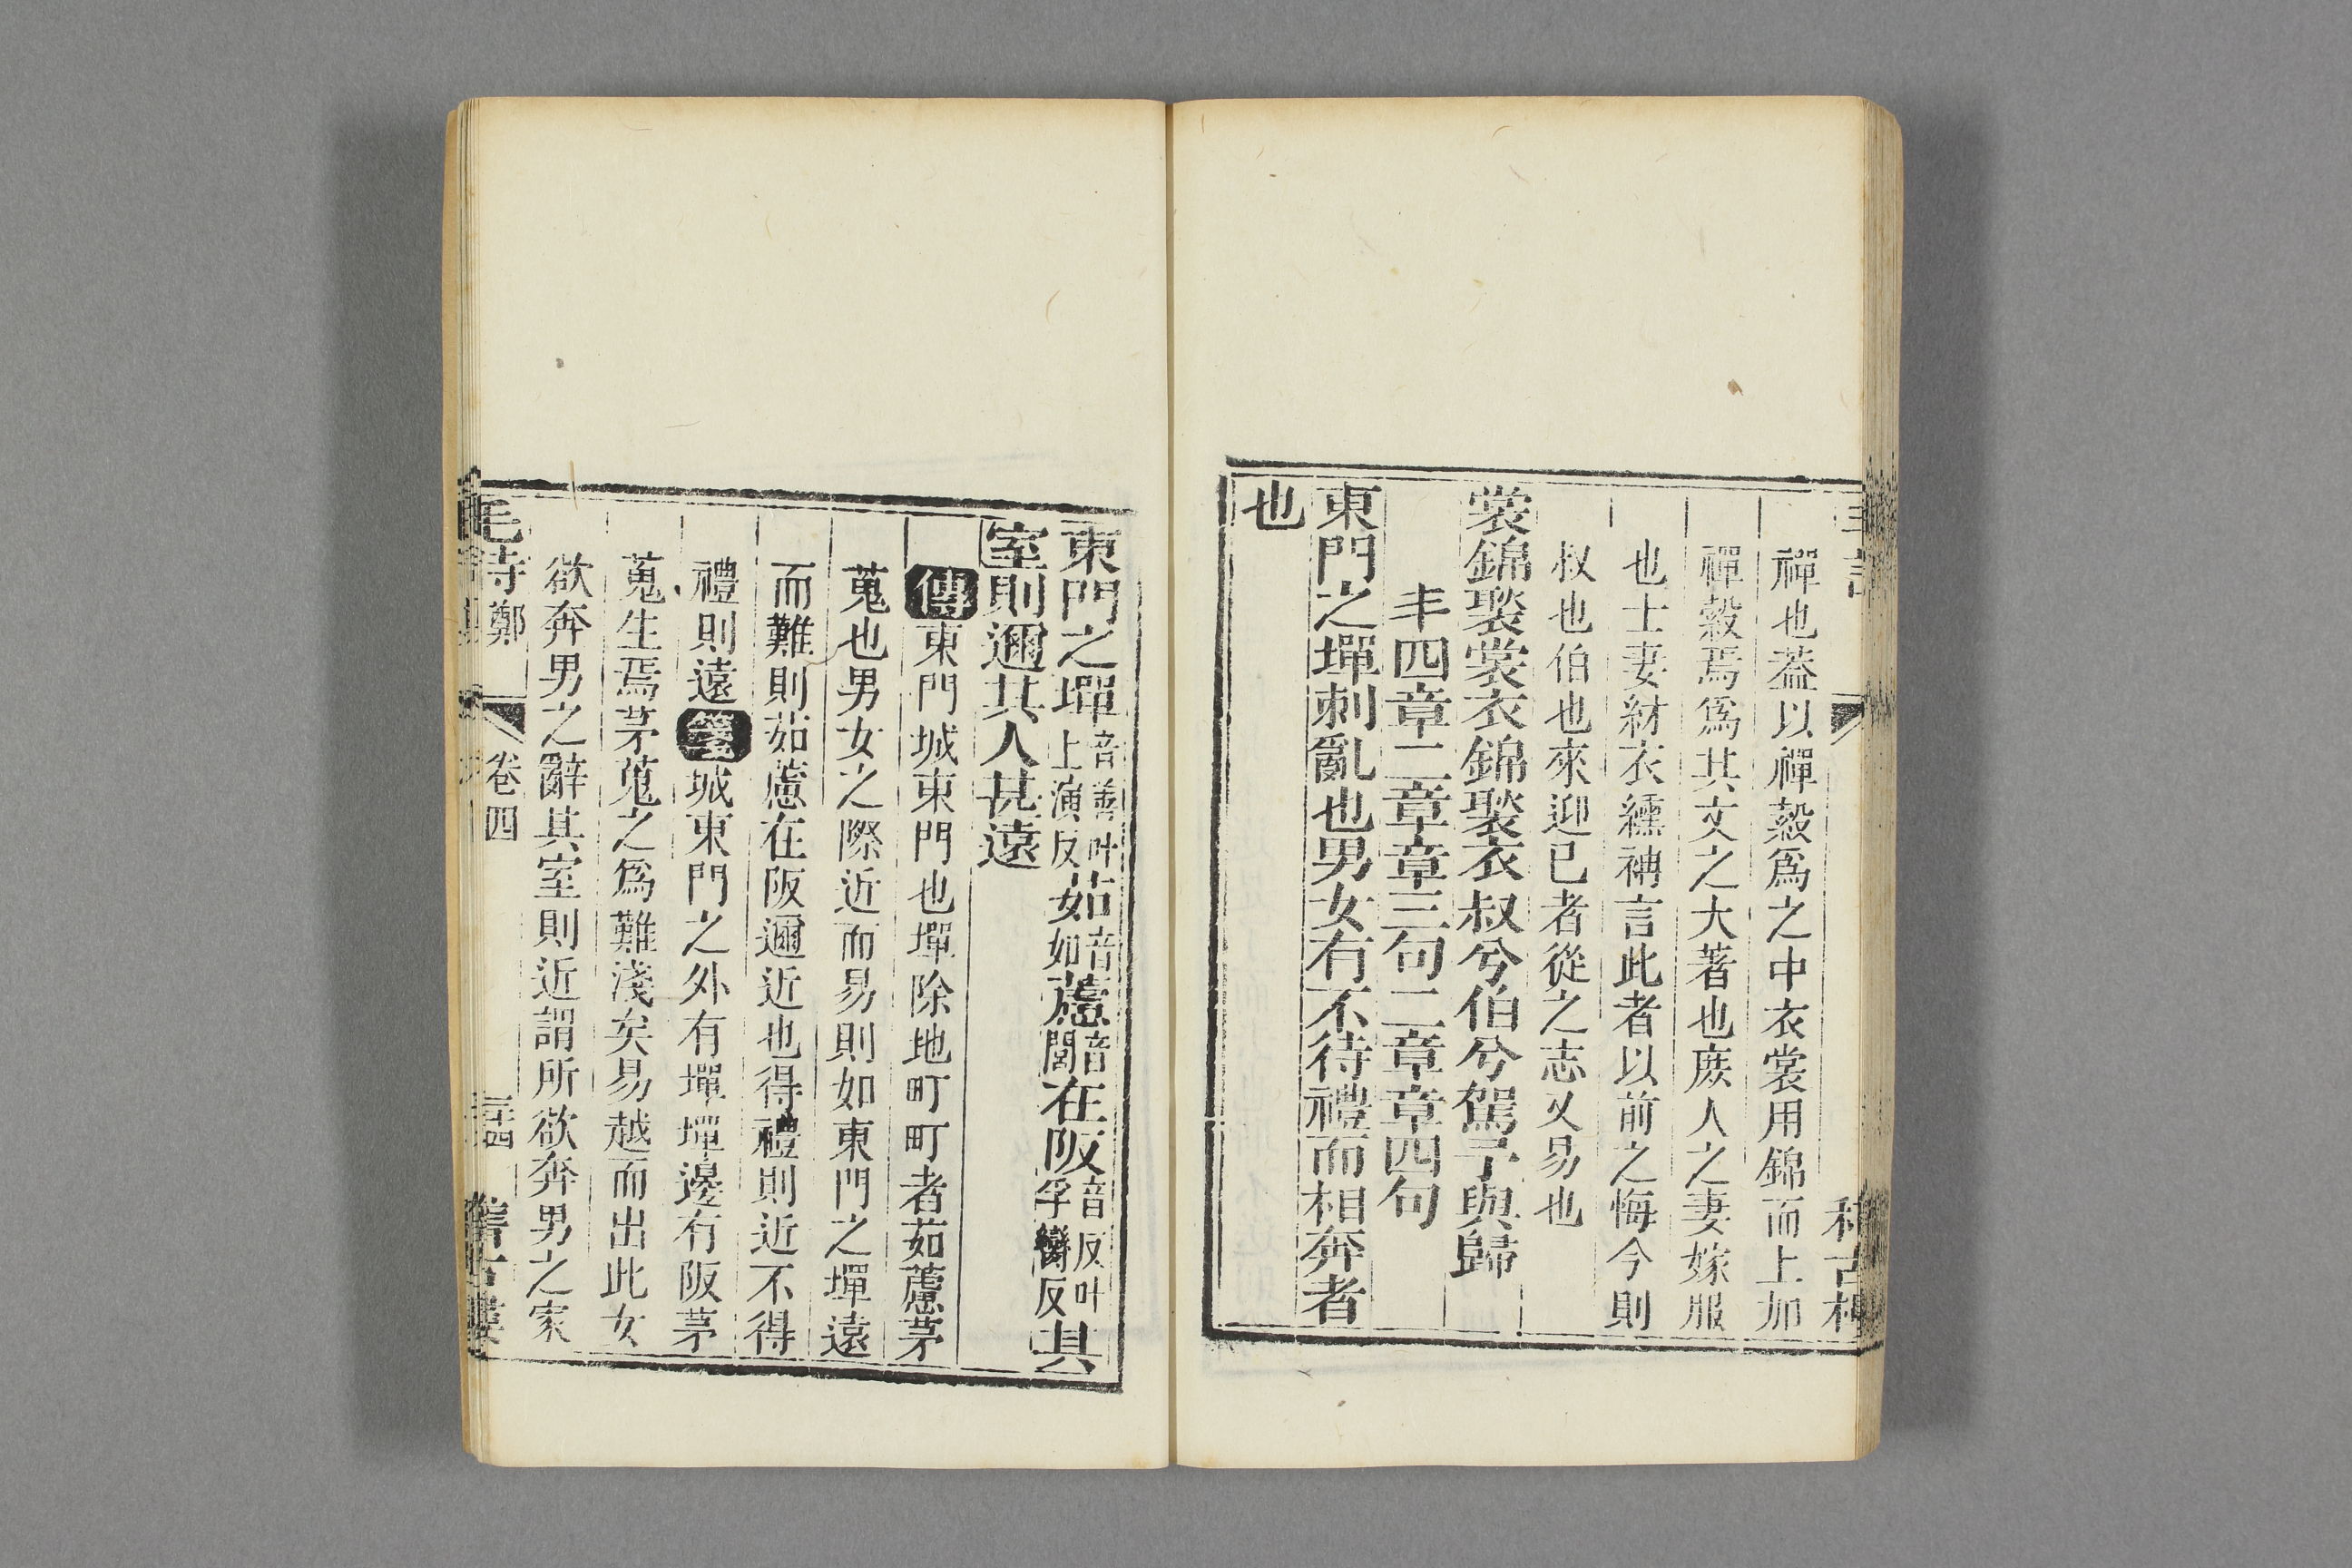 禪也葢以禪縠爲之中衣裳用錦而上加
禪縠焉爲其文之大著也庶人之妻嫁服
也士妻紂衣纁袡言此者以前之悔今則
叔也伯也來迎已者從之志又易也
裳錦褧裳衣錦褧衣叔兮伯兮駕予與歸
丰四章二章章三句二章章四句
東門之墠刺亂也男女有不待禮而相奔者
也
東門之墠音善叶上演反茹音如藘音閭在阪音反叶孚臠反其
室則邇其人甚遠
傳東門城東門也墠除地町町者茹藘茅
蒐也男女之際近而易則如東門之墠遠
而難則茹藘在阪邇近也得禮則近不得
禮則遠箋城東門之外有墠墠邊有阪茅
蒐生焉茅蒐之爲難淺矣易越而出此女
欲奔男之辭其室則近謂所欲奔男之家
毛詩鄭 卷四 二十四